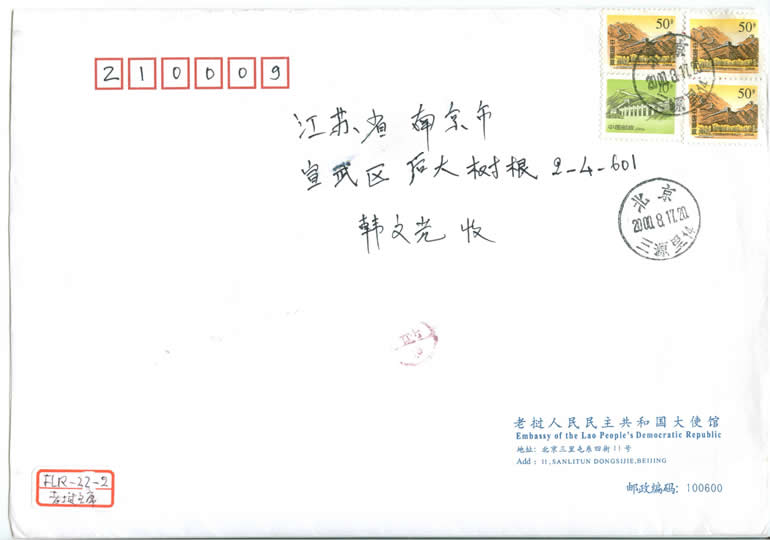 50分
50分
中国邮政
50分
中国邮政
北京
2000.8.17.20
210009
江苏省 南京市
宣武区 后大树根 2-4-601
韩文光 收
北京
2000.8.17.20
老挝人民民主共和国大使馆
Embassy of the Lao People's Democratic Republic
地址: 北京三里屯东四街11号
Add : 11,SANLITUN DONGSIJIE,BEIJING
邮政编码: 100600
FLR-22-2